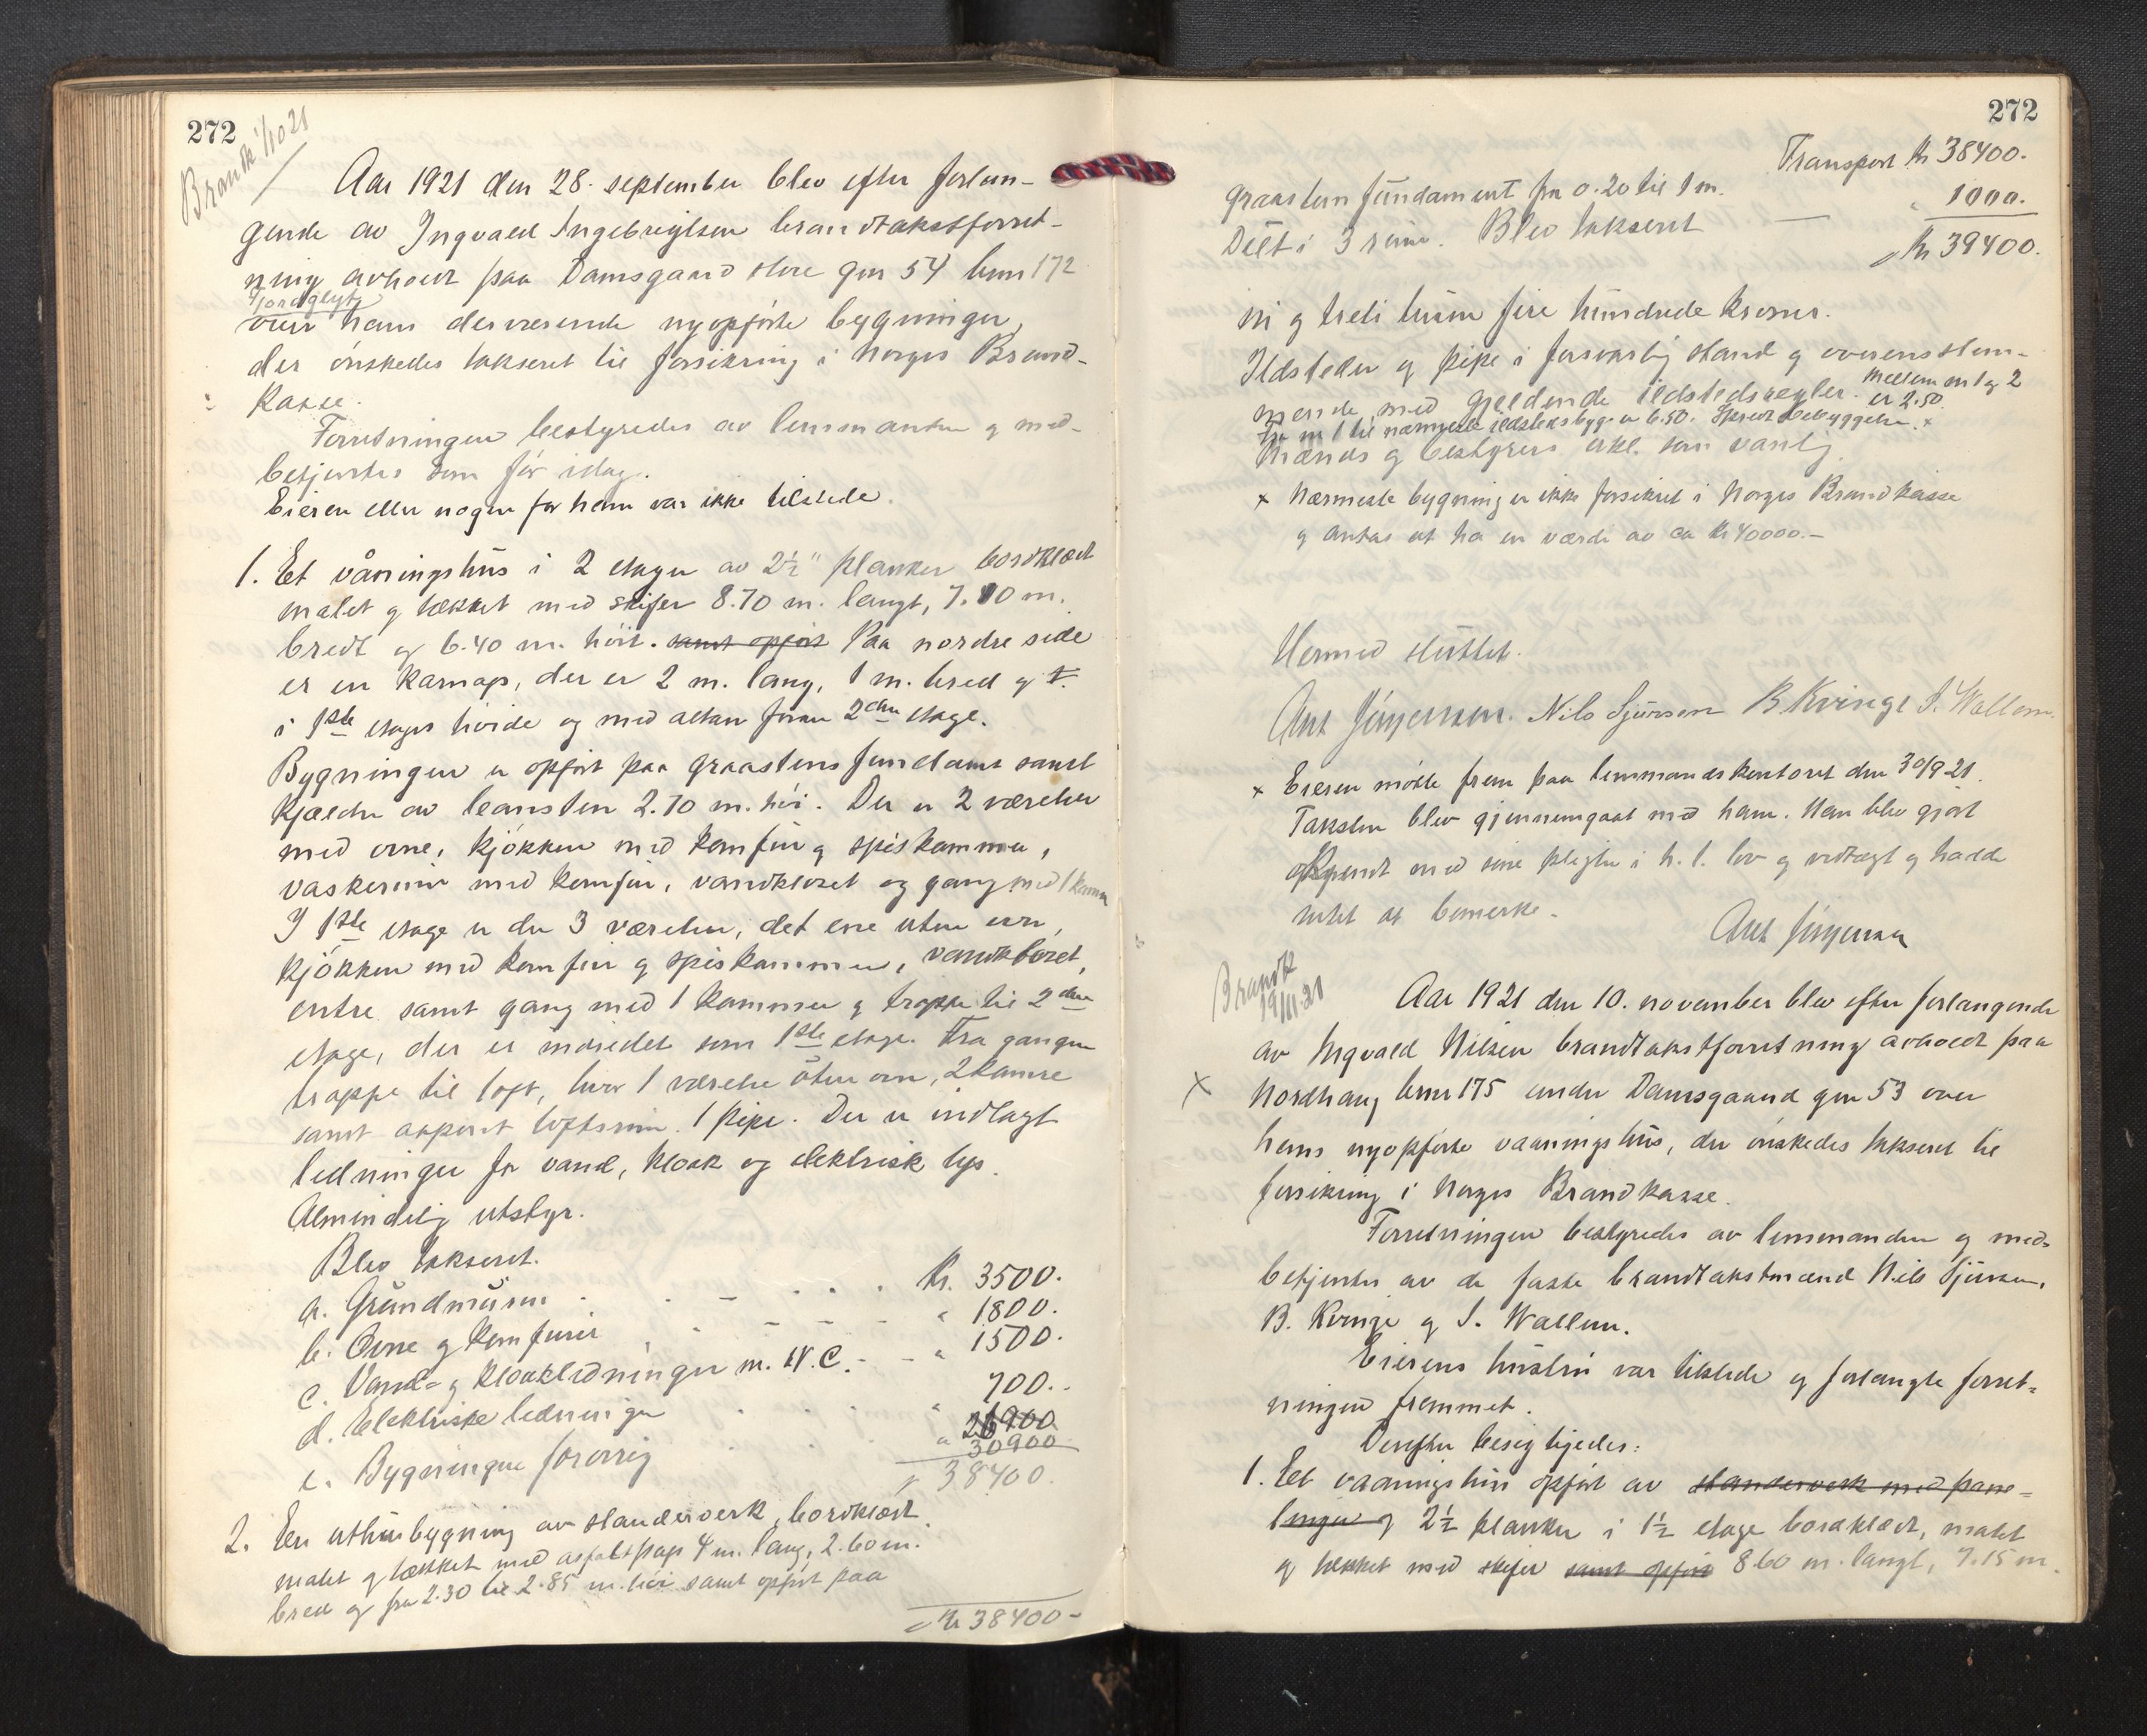 272
Brandk 1/10 21
Aar 1921 den 28. september blev efter forlan-
gende av Ingvald Ingebrigtsen brandtakstforret-
ning avholdt paa Damsgaard store gnr 54 bnr 172
Fjordglytt
over hans derværende nyopførte bygninger,
der ønskedes takseret til forsikring i Norges Brand-
kasse.
Forretningen bestyredes av lensmanden og med-
betjentes som før idag.
Eieren eller nogen for ham var ikke tilstede.
1. Et våningshus i 2 etager av 2½" planker bordklædt
malet og tækket med skifer 8.70 m. langt, 7.10 m.
bredt og 6.40 m. høit. samt opført Paa nordre side
er en karnap, der er 2 m. lang, 1 m. bred og
i 1ste etages høide og med altan foran 2den etage.
Bygningen er opført paa graastensfundamt samt
kjælder av leansten 2.70 m. høi. Der er 2 værelser
med ovne, kjøkken med komfur og spiskammer,
vaskerum med komfur, vandkloset og gang med 1 kammer
I 1ste etage er der 3 værelser, det ene uten ovn,
kjøkken med komfur og spiskammer, vandkloset,
entre samt gang med 1 kammer og trappe til 2den
etage, der er indredet som 1ste etage. Fra gangen
trappe til loft, hvor 1 værelse uten ovn, 2 kamre
samt aapent loftsrum. 1 pipe. Der er indlagt
ledninger for vand, kloak og elektrisk lys.
Almindelig utstyr.
Blev takseret.
a. Grundmuren . . . Kr. 3500.
b. Ovne og komfurer " 1800.
c. Vand- og kloakledninger m. W.C. " 1500.
d. Elektriske ledninger " 700.
e. Bygningen forøvrig " 26900
30900
38400.
2. En uthusbygning av standerverk, bordklædt
malet og tækket med asfaltpap 4 m. lang, 2.60 m.
bred og fra 2.30 til 2.85 m. høi samt opført paa
Kr 38400-
272
Transport Kr 38400.
graastensfundament fra 0.20 til 1 m.
Delt i 3 rum. Blev takseret — " 1000.
Kr 39400.
ni og treti tusen fire hundrede kroner.
Ildsteder og pipe i forsvarlig stand og overensstem-
mende med gjeldende ildstedsregler. Mellem nr 1 og 2
er 2.50
Fra nr 1 til nærmeste ildstedsbygn. er 6.50. Spredt bebyggelse. x
Mænds og bestyrers erkl. som vanlig.
x Nærmeste bygning er ikke forsikret i Norges Brandkasse
og antas at ha en værdi av ca Kr 40000.-
Hermed sluttet.
Ant Jørgensen. Nils Sjursen B. Kvinge S. Wallem.
x Eieren møtte frem paa lensmandskontoret den 30/9 21.
Taksten blev gjennemgaat med ham. Han blev gjort
bekjendt med sine pligter i h. t. lov og vedtægt og hadde
intet at bemerke.
Ant Jørgensen
Brandk
19/11.21
Aar 1921 den 10. november blev efter forlangende
av Ingvald Nilsen brandtakstforretning avholdt paa
x Nordhaug bnr 175 under Damsgaard gnr 53 over
hans nyopførte vaaningshus, der ønskedes takseret til
forsikring i Norges Brandkasse.
Forretningen bestyredes av lensmanden og med-
betjentes av de faste brandtakstmænd Nils Sjursen,
B. Kvinge og S. Wallem.
Eierens hustru var tilstede og forlangte forret-
ningen fremmet.
Derefter besigtigedes:
1. Et vaaningshus opført av standerverk med pane-
linger og 2½ planker i 1½ etage bordklædt, malet
og tækket med skifer samt opført 8.60 m. langt, 7.15 m.